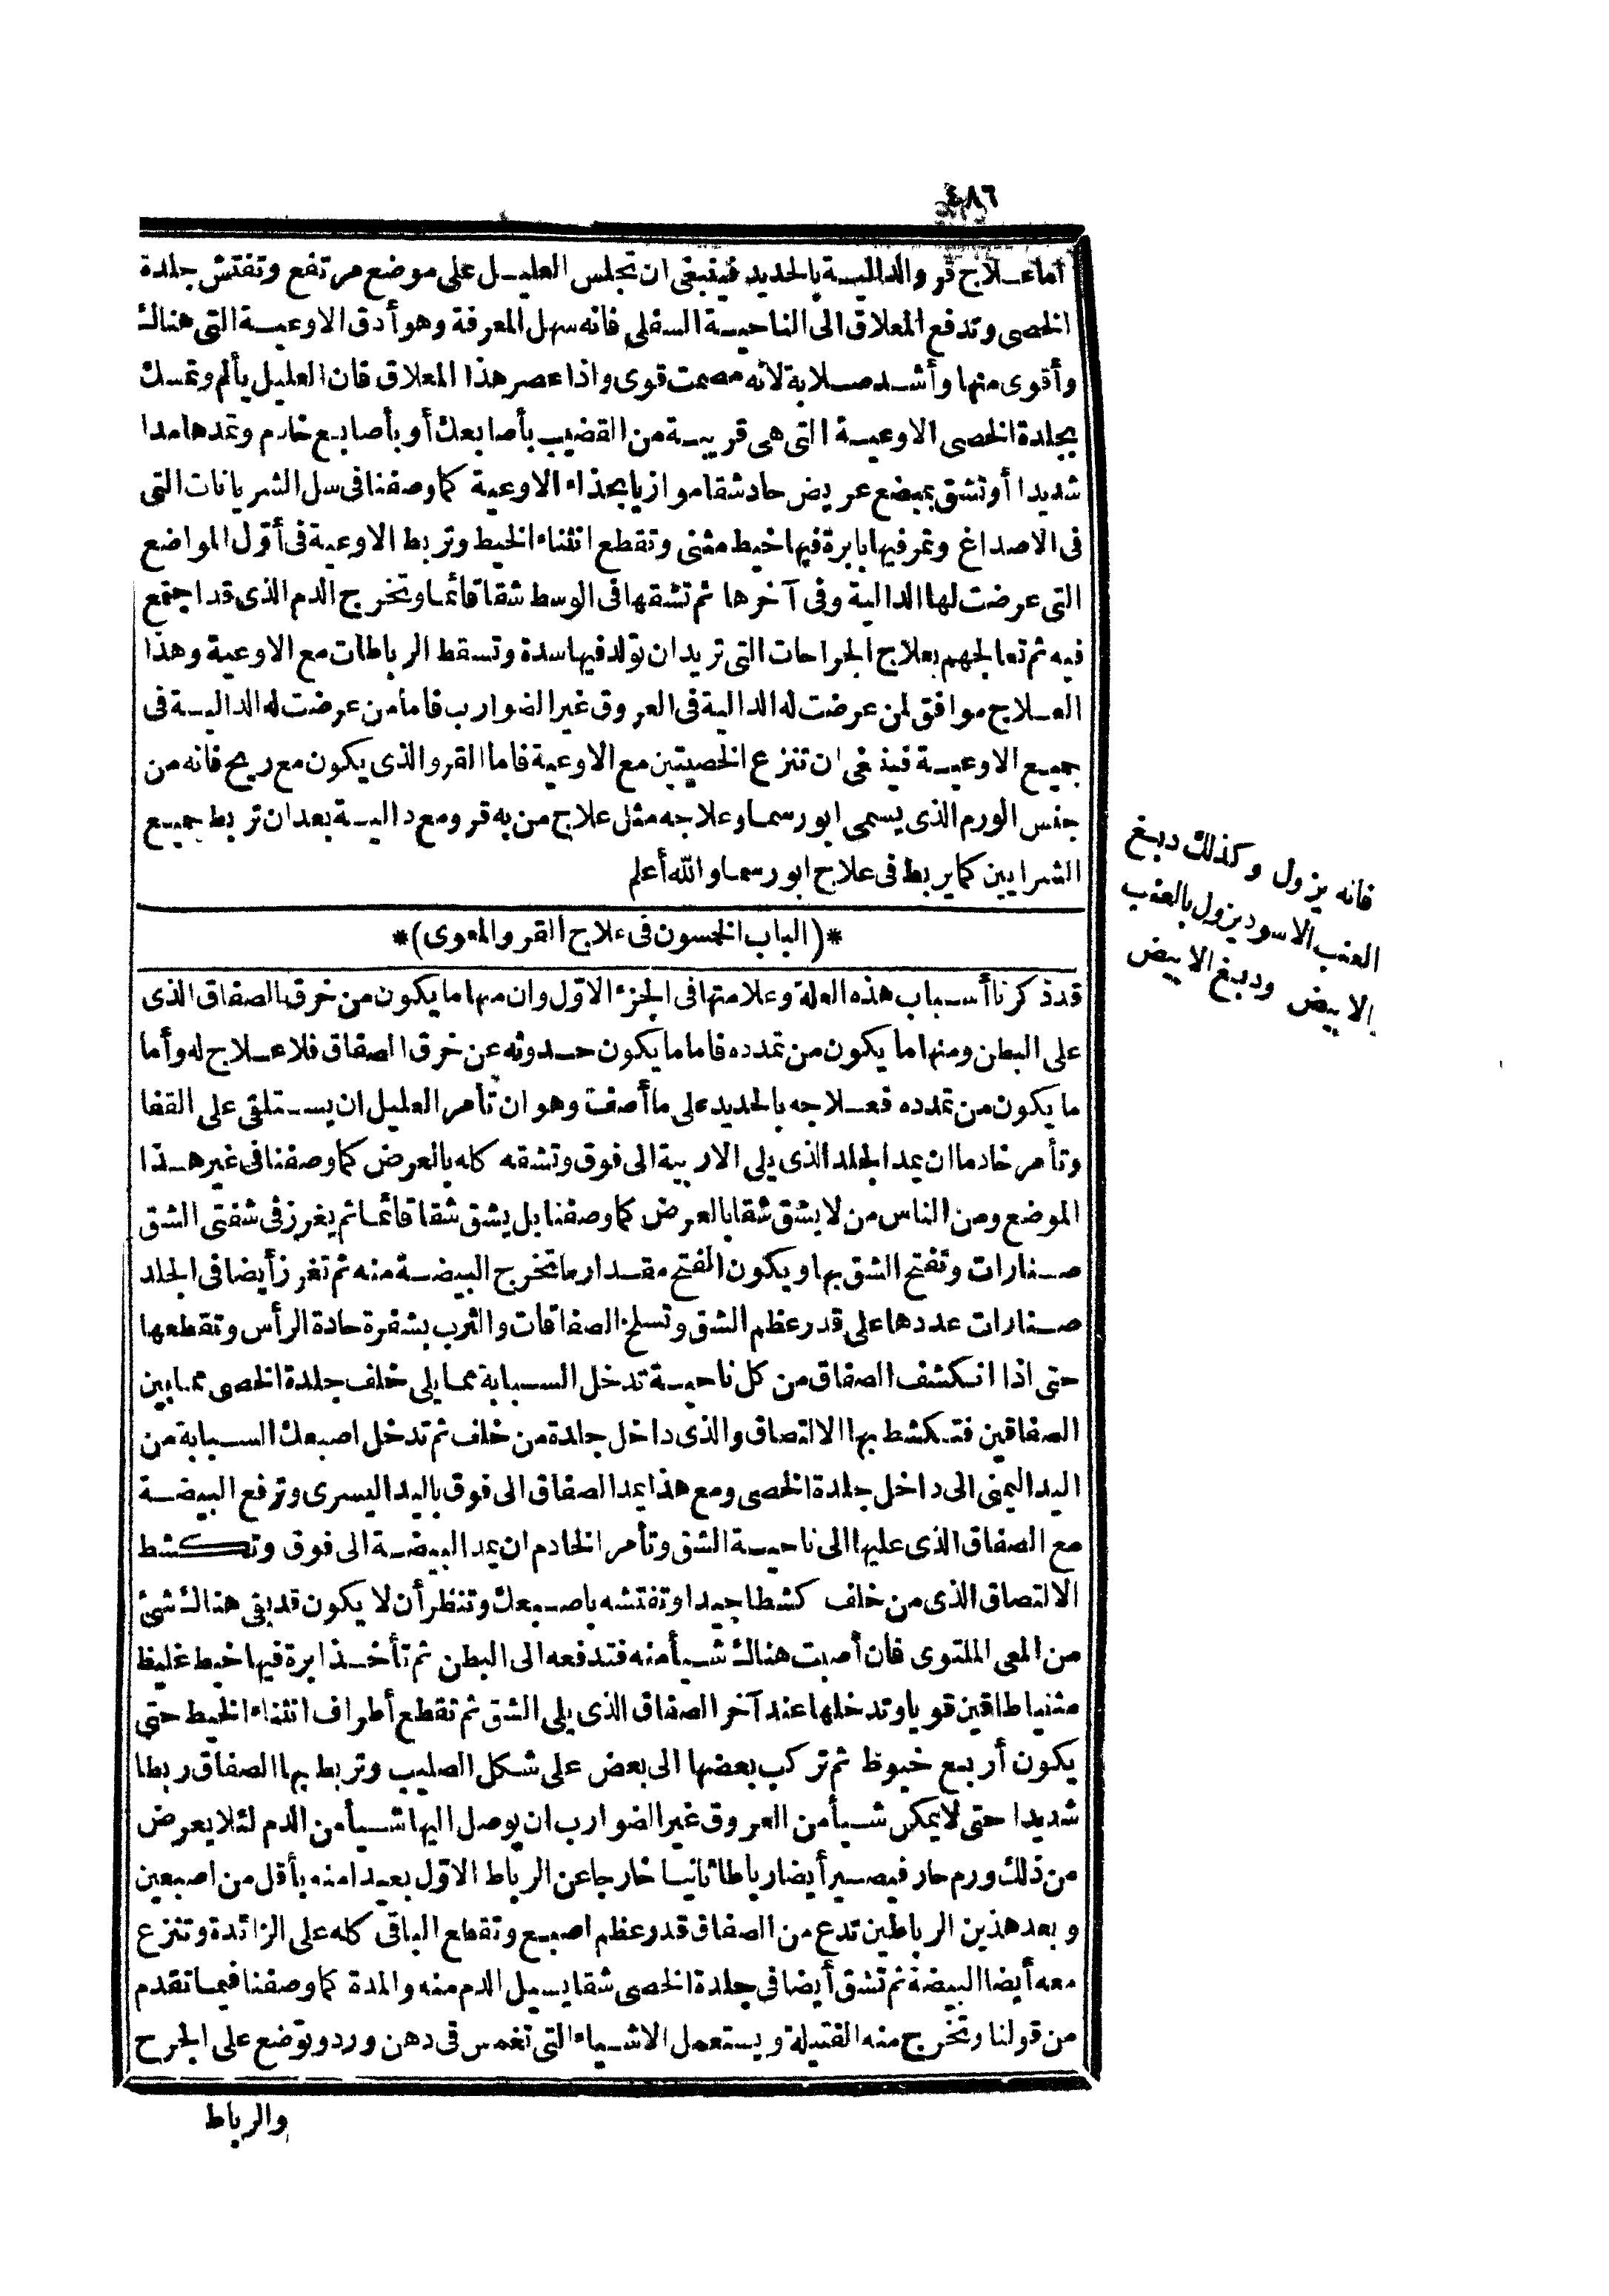 ٤٨٦
اما علاج قرو الدالية بالحديد فينبغى ان تجلس العليل على موضع مرتفع وتفتش جلدة
الخصى وتدفع المعلاق الى الناحية السفلى فانه سهل المعرفة وهو أدق الاوعية التى هناك
وأقوى منها وأشد صلابة لانه مصمت قوى واذا عصر هذا المعلاق فان العليل يألم وتمسك
بجلدة الخصى الاوعية التى هى قريبة من القضيب بأصابعك أو بأصابع خادم وتمدها مدا
شديدا أو تشق بمبضع عريض حاد شقا موازيا بحذاء الاوعية كما وصفنا فى سل الشريانات التى
فى الاصداغ وتمر فيها بابرة فيها خيط مثنى وتقطع انثناء الخيط وتربط الاوعية فى أوّل المواضع
التى عرضت لها الدالية وفى آخرها ثم تشقها فى الوسط شقا قائما وتخرج الدم الذى قد اجتمع
فيه ثم تعالجهم بعلاج الجراحات التى تريد ان تولد فيها سدة وتسقط الرباطات مع الاوعية وهذا
العلاج موافق لمن عرضت له الدالية فى العروق غير الضوارب فاما من عرضت له الدالية فى
جميع الاوعية فينبغى ان تنزع الخصيتين مع الاوعية فاما القرو الذى يكون مع ريح فانه من
جنس الورم الذى يسمى ابورسما وعلاجه مثل علاج من به قرو مع دالية بعد ان تربط جميع
الشرايين كما يربط فى علاج ابورسما والله أعلم
*(الباب الخمسون فى علاج القرو المعوى)*
قد ذكرنا أسباب هذه العلة وعلامتها فى الجزء الاوّل وان منها ما يكون من خرق الصفاق الذى
على البطن ومنها ما يكون من تمدده فاما ما يكون حدوثه عن خرق الصفاق فلا علاج له وأما
ما يكون من تمدده فعلاجه بالحديد على ما أصف وهو ان تأمر العليل ان يستلقى على القفا
وتأمر خادما ان يمد الجلد الذى يلى الاربية الى فوق وتشقه كله بالعرض كما وصفنا فى غير هذا
الموضع ومن الناس من لا يشق شقا بالعرض كما وصفنا بل يشق شقا قائما ثم يغرز فى شفتى الشق
صنارات وتفتح الشق بها ويكون الفتح مقدار ما تخرج البيضة منه ثم تغرز أيضا فى الجلد
صنارات عددها على قدر عظم الشق وتسلخ الصفاقات والثرب بشفرة حادة الرأس وتقطعها
حتى اذا انكشف الصفاق من كل ناحية تدخل السبابة مما يلى خلف جلدة الخصى مما بين
الصفاقين فتكشط بها الالتصاق والذى داخل جلدة من خلف ثم تدخل اصبعك السبابة من
اليد اليمنى الى داخل جلدة الخصى ومع هذا يمد الصفاق الى فوق باليد اليسرى وترفع البيضة
مع الصفاق الذى عليها الى ناحية الشق وتأمر الخادم ان يمد البيضة الى فوق وتكشط
الالتصاق الذى من خلف كشطا جيدا وتفتشه باصبعك وتنظر أن لا يكون قد بقى هناك شئ
من المعى الملتوى فان أصبت هناك شيأ منه فتدفعه الى البطن ثم تأخذ ابرة فيها خيط غليظ
مثنيا طاقين قويا وتدخلها عند آخر الصفاق الذى يلى الشق ثم تقطع أطراف انثناء الخيط حتى
يكون أربع خيوط ثم تركب بعضها الى بعض على شكل الصليب وتربط بها الصفاق ربطا
شديدا حتى لا يمكن شيأ من العروق غير الضوارب ان يوصل اليها شيأ من الدم لئلا يعرض
من ذلك ورم حار فيصير أيضا رباطا ثانيا خارجا عن الرباط الاوّل بعيدا منه بأقل من اصبعين
وبعد هذين الرباطين تدع من الصفاق قدر عظم اصبع وتقطع الباقى كله على الزائدة وتنزع
معه أيضا البيضة ثم تشق أيضا فى جلدة الخصى شقا يسيل الدم منه والمدة كما وصفنا فيما تقدم
من قولنا وتخرج منه الفتيلة ويستعمل الاشياء التى تغمس فى دهن ورد وتوضع على الجرح
والرباط
فانه يزول وكذلك دبغ
العنب الاسود يزول بالعنب
الابيض ودبغ الابيض